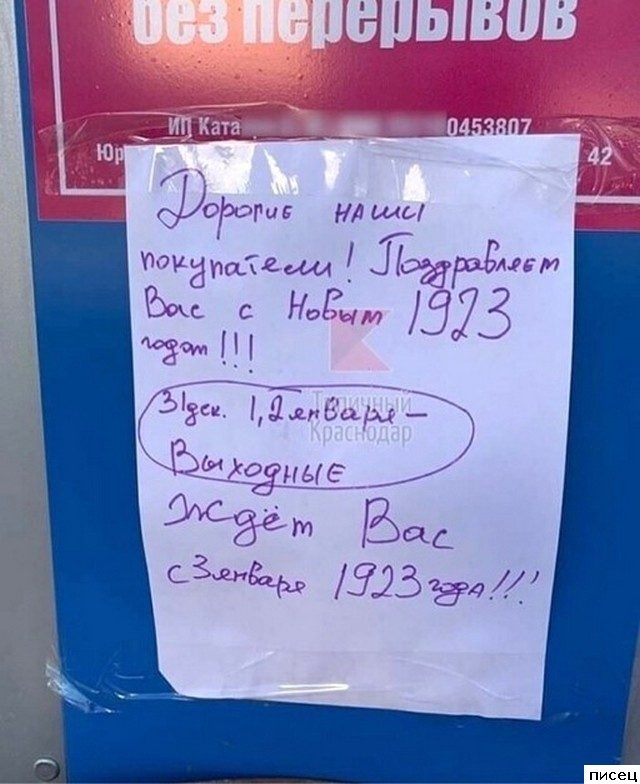 без перерывов
ИП Ката 0453807
Юр 42
Дорогие наши
покупатели! Поздравляем
Вас с Новым 1923
годом!!!
31 дек. 1, 2 января –
Выходные
Ждём Вас
с 3 января 1923 года!!!
Типичный
Краснодар
писец